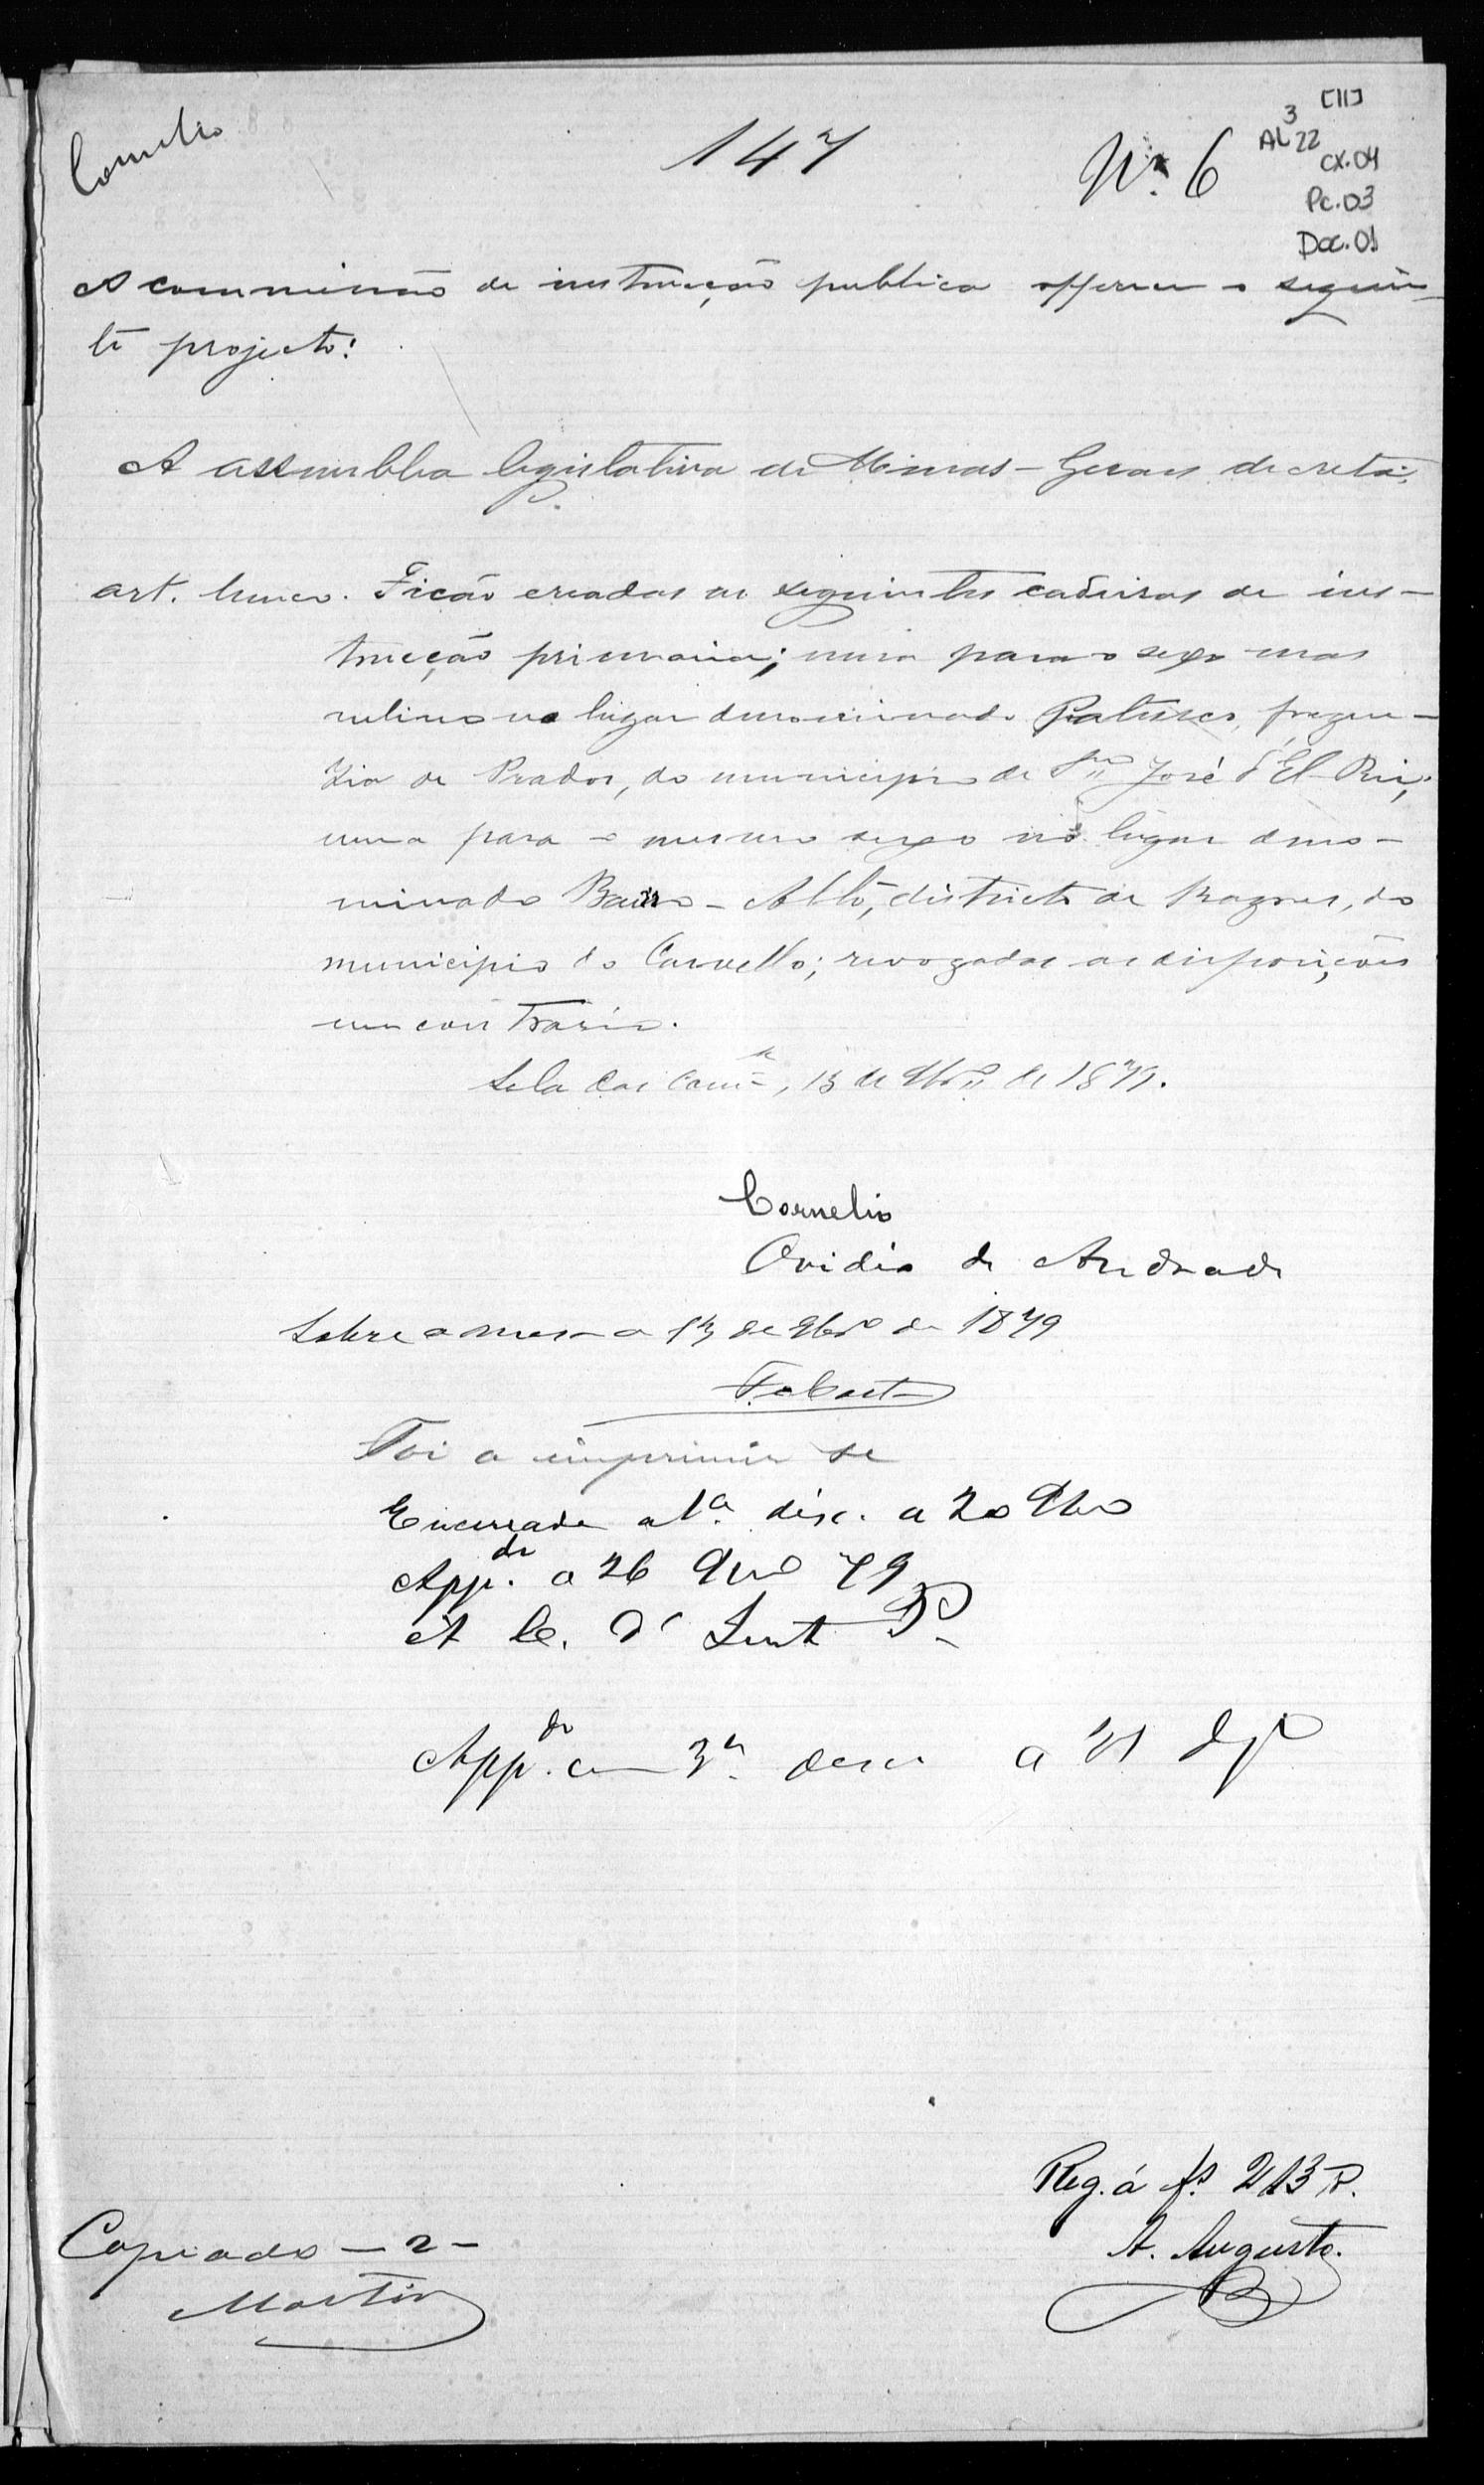 Cornelio
147
Nº 6
[11]
3
AL 22
CX.04
Pc.03
Doc.01
A commissão de instrucção publica offerece o seguin-
te projecto:
A assemblea legislativa de Minas-Geraes decreta:
art. unico. Ficão creadas as seguintes cadeiras de ins-
trucção primaria; uma para o sexo mas
culino no lugar denominado Patusca, fregue-
zia de Prados, do municipio de São José d'El-Rei;
uma para o mesmo sexo no lugar deno-
minado Bairro-Alto, districto de Bagres, do
municipio do Curvello; revogadas as disposições
em contrario.
Sala das Com.es, 13 de 9br.o de 1879.
Cornelio
Ovidio de Andrade
Sobre a mesa a 13 de 9bro de 1879
Foi a imprimir se
Encerrada a 1ª disc. a 20 9bro
App.da a 26 9bro 79
App.do em 3ª disc a
Reg. á fs. 213
A. Augusto.
Copiado - 2 -
Martins